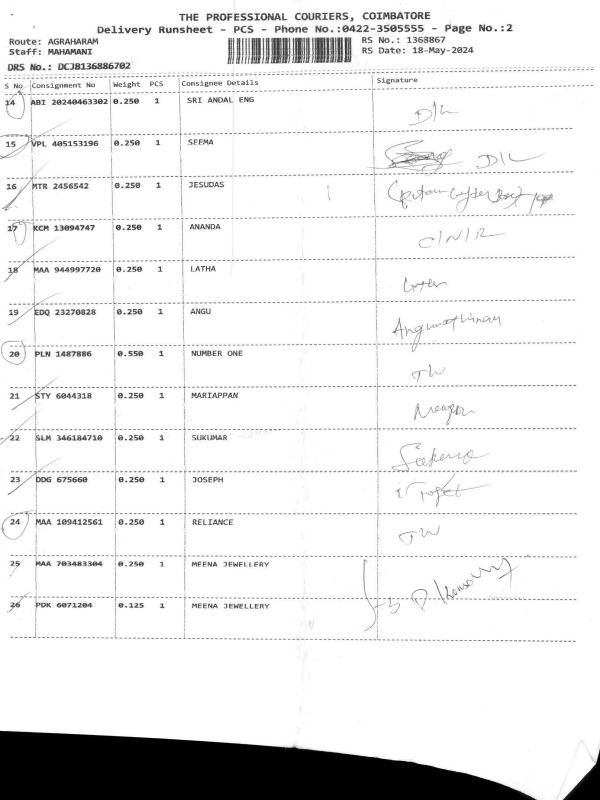 THE PROFESSIONAL COURIERS, COIMBATORE
Delivery Runsheet - PCS - Phone No.:0422-3505555 - Page No.:2
Route: AGRAHARAM RS No.: 1368867
Staff: MAHAMANI RS Date: 18-May-2024
DRS No.: DCJB136886702
S No Consignment No Weight PCS Consignee Details Signature
14 ABI 20240463302 0.250 1 SRI ANDAL ENG D/L
15 VPL 405153196 0.250 1 SEEMA D/L
16 MTR 2456542 0.250 1 JESUDAS
17 KCM 13094747 0.250 1 ANANDA C/N/R
18 MAA 944997720 0.250 1 LATHA
19 EDQ 23270828 0.250 1 ANGU
20 PLN 1487886 0.550 1 NUMBER ONE TW
21 STY 6044318 0.250 1 MARIAPPAN
22 SLM 346184710 0.250 1 SUKUMAR
23 DDG 675660 0.250 1 JOSEPH
24 MAA 109412561 0.250 1 RELIANCE TW
25 MAA 703483304 0.250 1 MEENA JEWELLERY
26 PDK 6071204 0.125 1 MEENA JEWELLERY